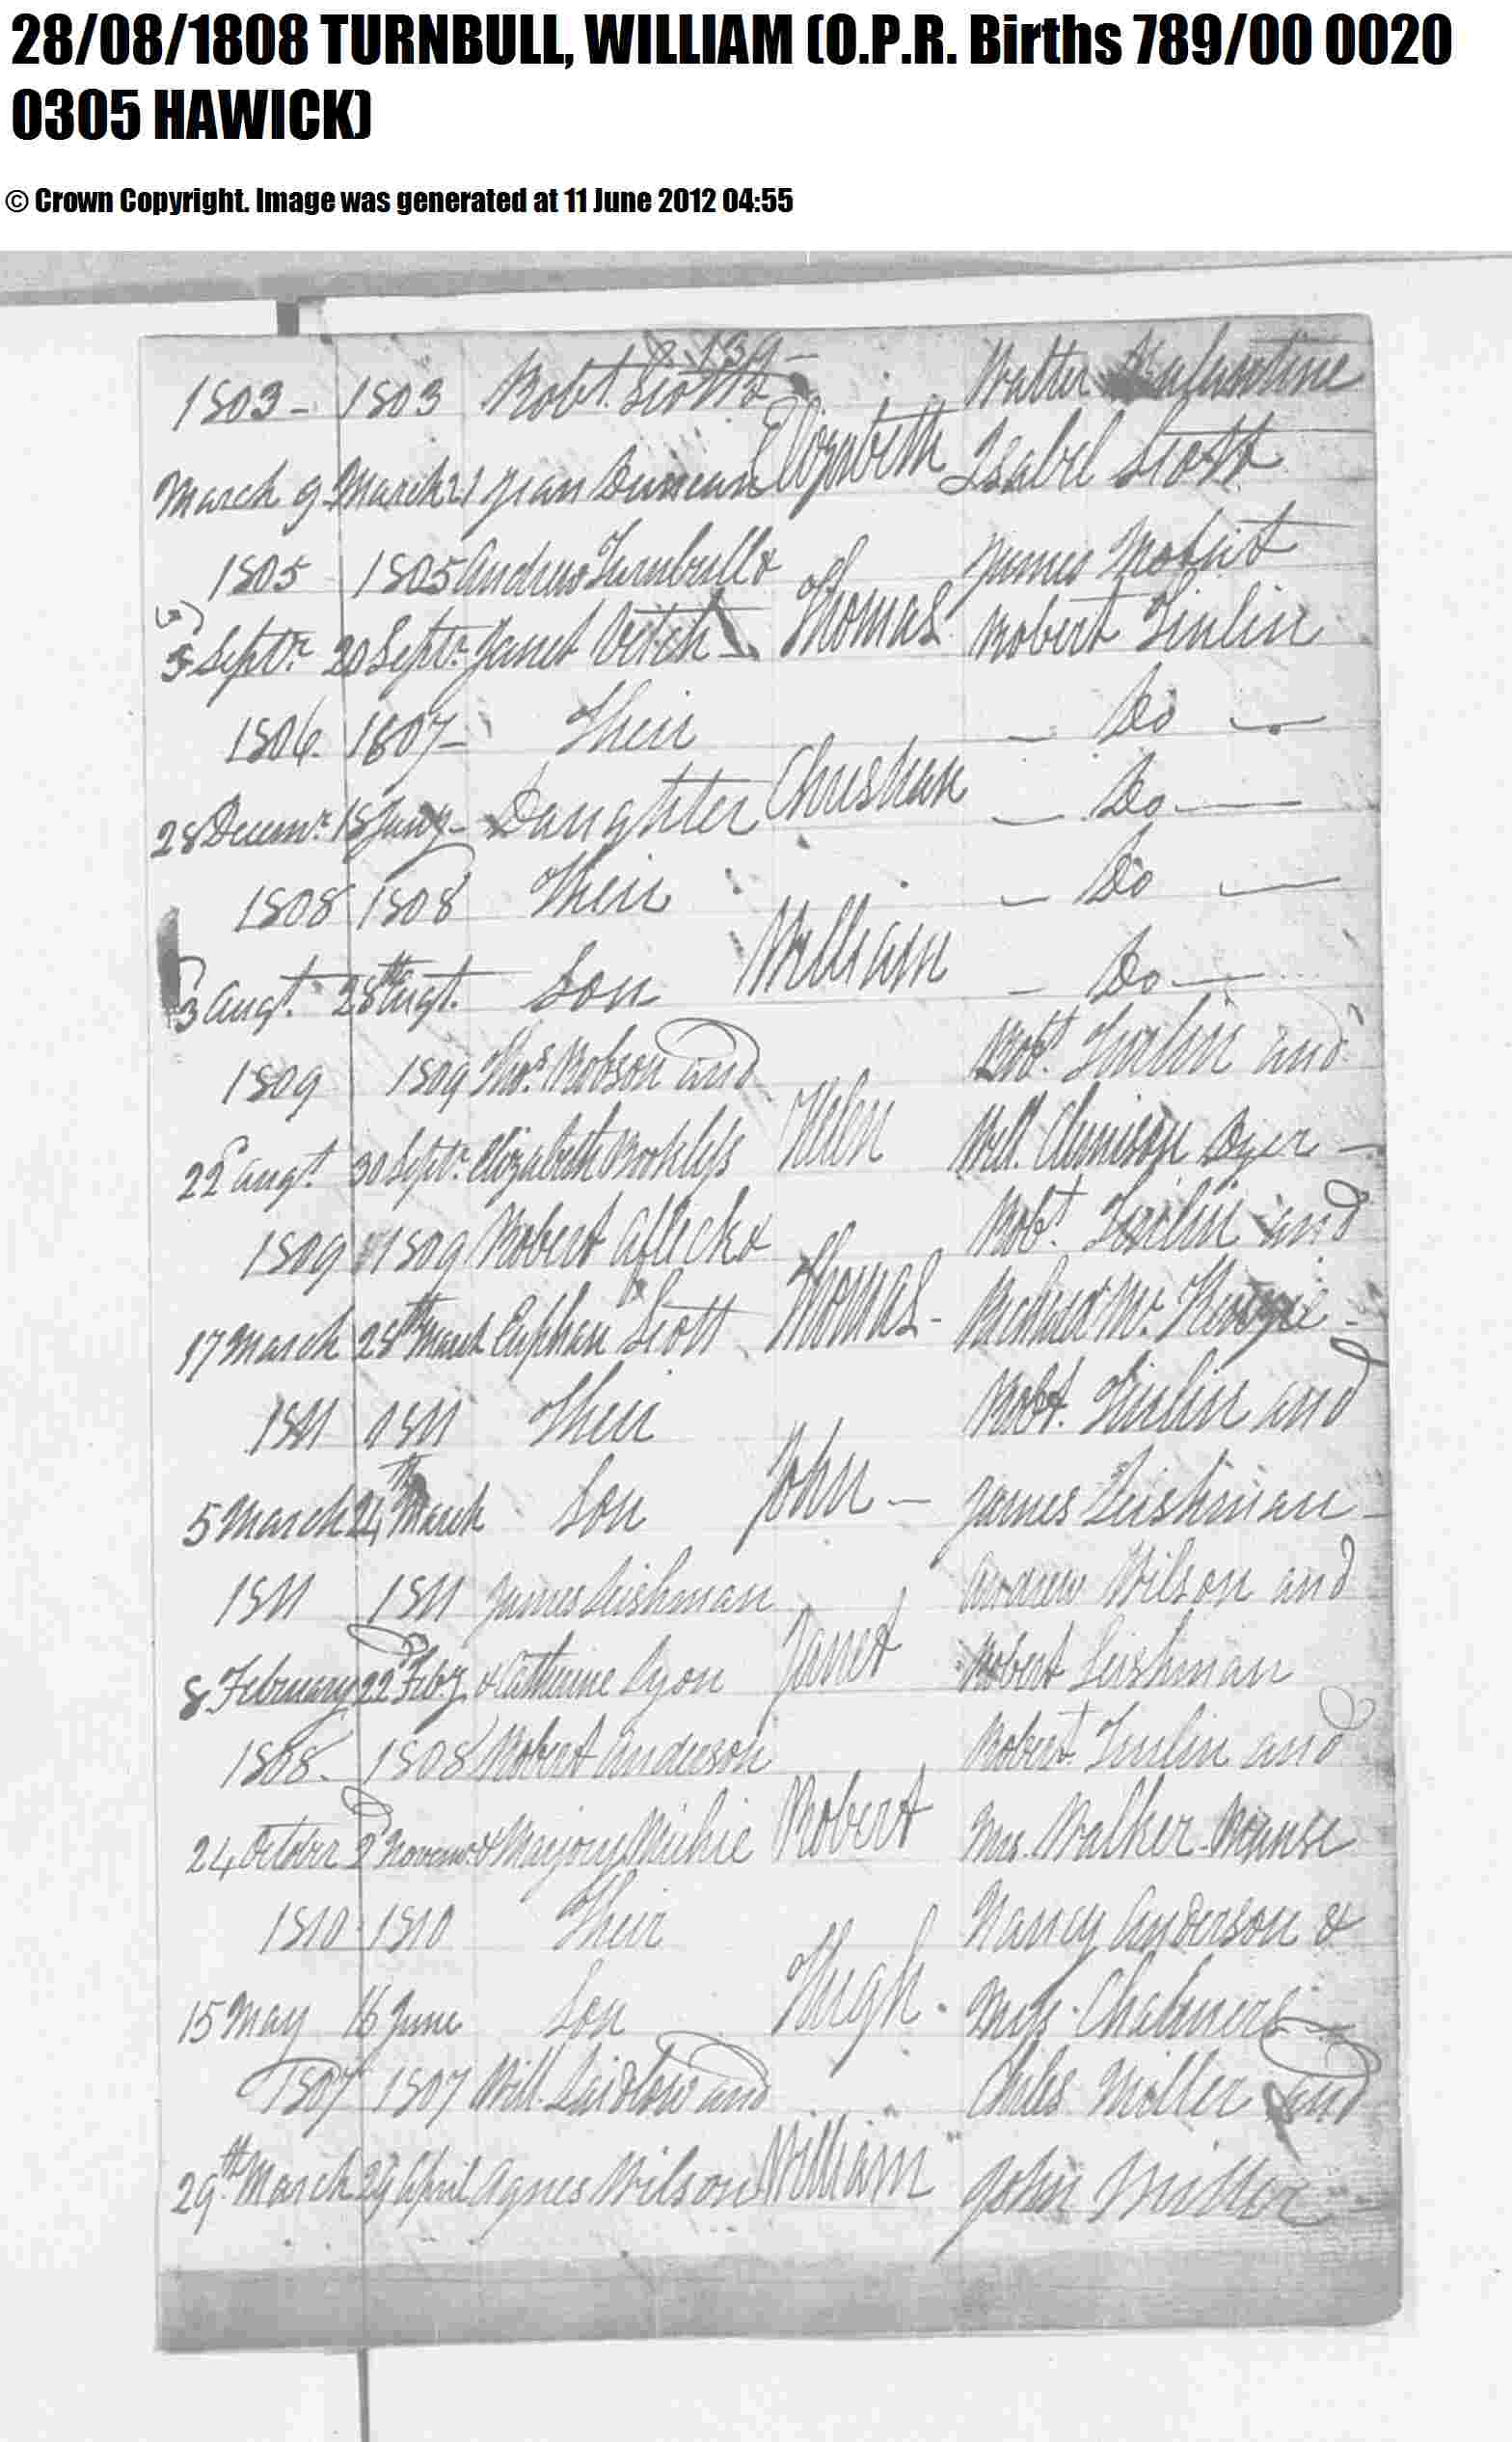 28/08/1808 TURNBULL, WILLIAM (O.P.R. Births 789/00 0020
0305 HAWICK)
© Crown Copyright. Image was generated at 11 June 2012 04:55
139 -
1803 - 1803 Robt. Scott & Walter
March 9 March 21 Jean Duncan Elizabeth Isabel Scott
1805 1805 Andrew Turnbull & James
5 Septr. 20 Septr. Janet Veitch Thomas Robert Tinlin
1806. 1807 - Their - Do -
28 Decemr. 18 Jany - Daughter Christian - Do -
1808 1808 Their - Do -
3 Augt. 28th Augt. Son William - Do -
1809 1809 Thos. Robson and Robt. Tinlin and
22d Augt. 30 Septr. Elizabeth Helen Willm. Dyer -
1809 1809 Robert Afleck & Robt. Tinlin and
17 March 28th March Euphan Scott Thomas - Richard
1811 1811 Their Robt. Tinlin and
5 March 24th March Son John - James Leishman -
1811 1811 James Leishman Andrew Wilson and
8 February 22d Feby. & Catherine Lyon Janet Robert Leishman
1808. 1808 Robert Anderson Robert Tinlin and
24 October 2d Novemr. & Marjory Michie Robert Mrs. Walker Manse
1810 1810 Their Nancy Anderson &
15 May 16 June Son Hugh. Miss Chalmers
1807 1807 Will. Laidlow and Charles Miller and
29th March 29 April Agnes Wilson William John Miller